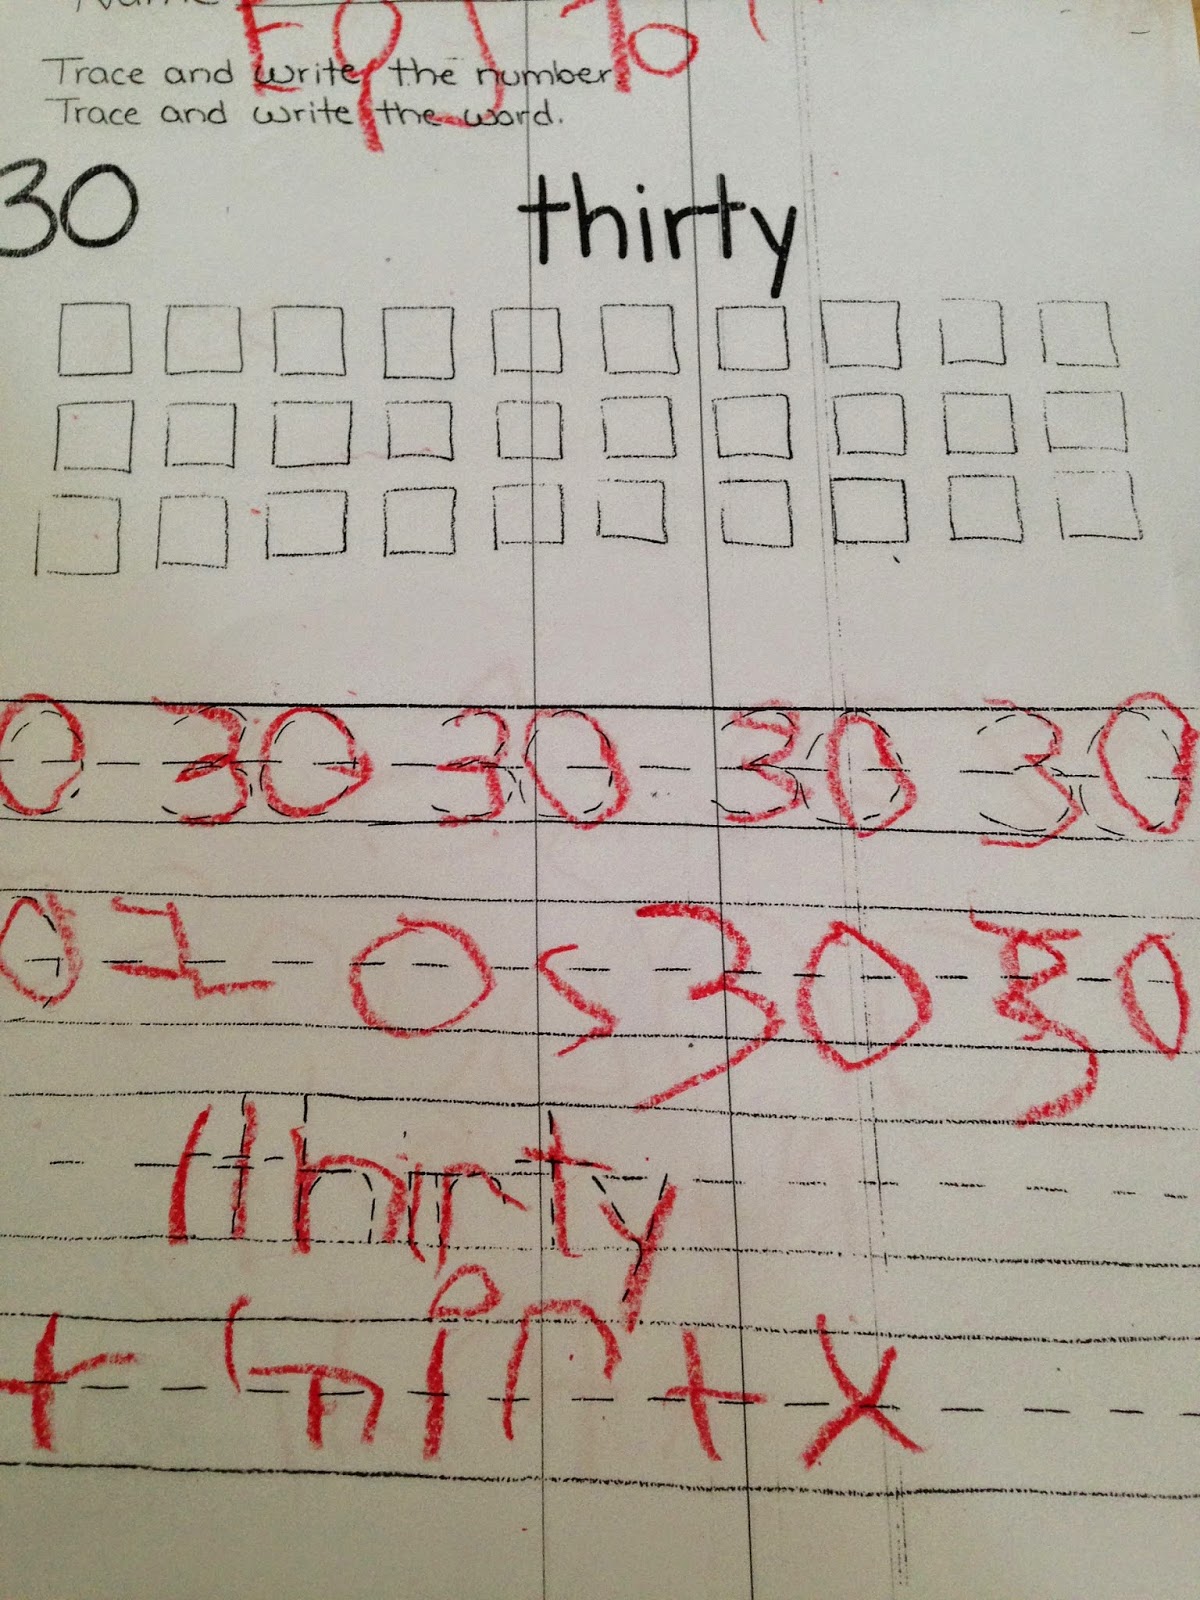 Name
Trace and write the number
Trace and write the word.
30 thirty
0 30 30 30 30
0 0 30 30
thirty
thirtx